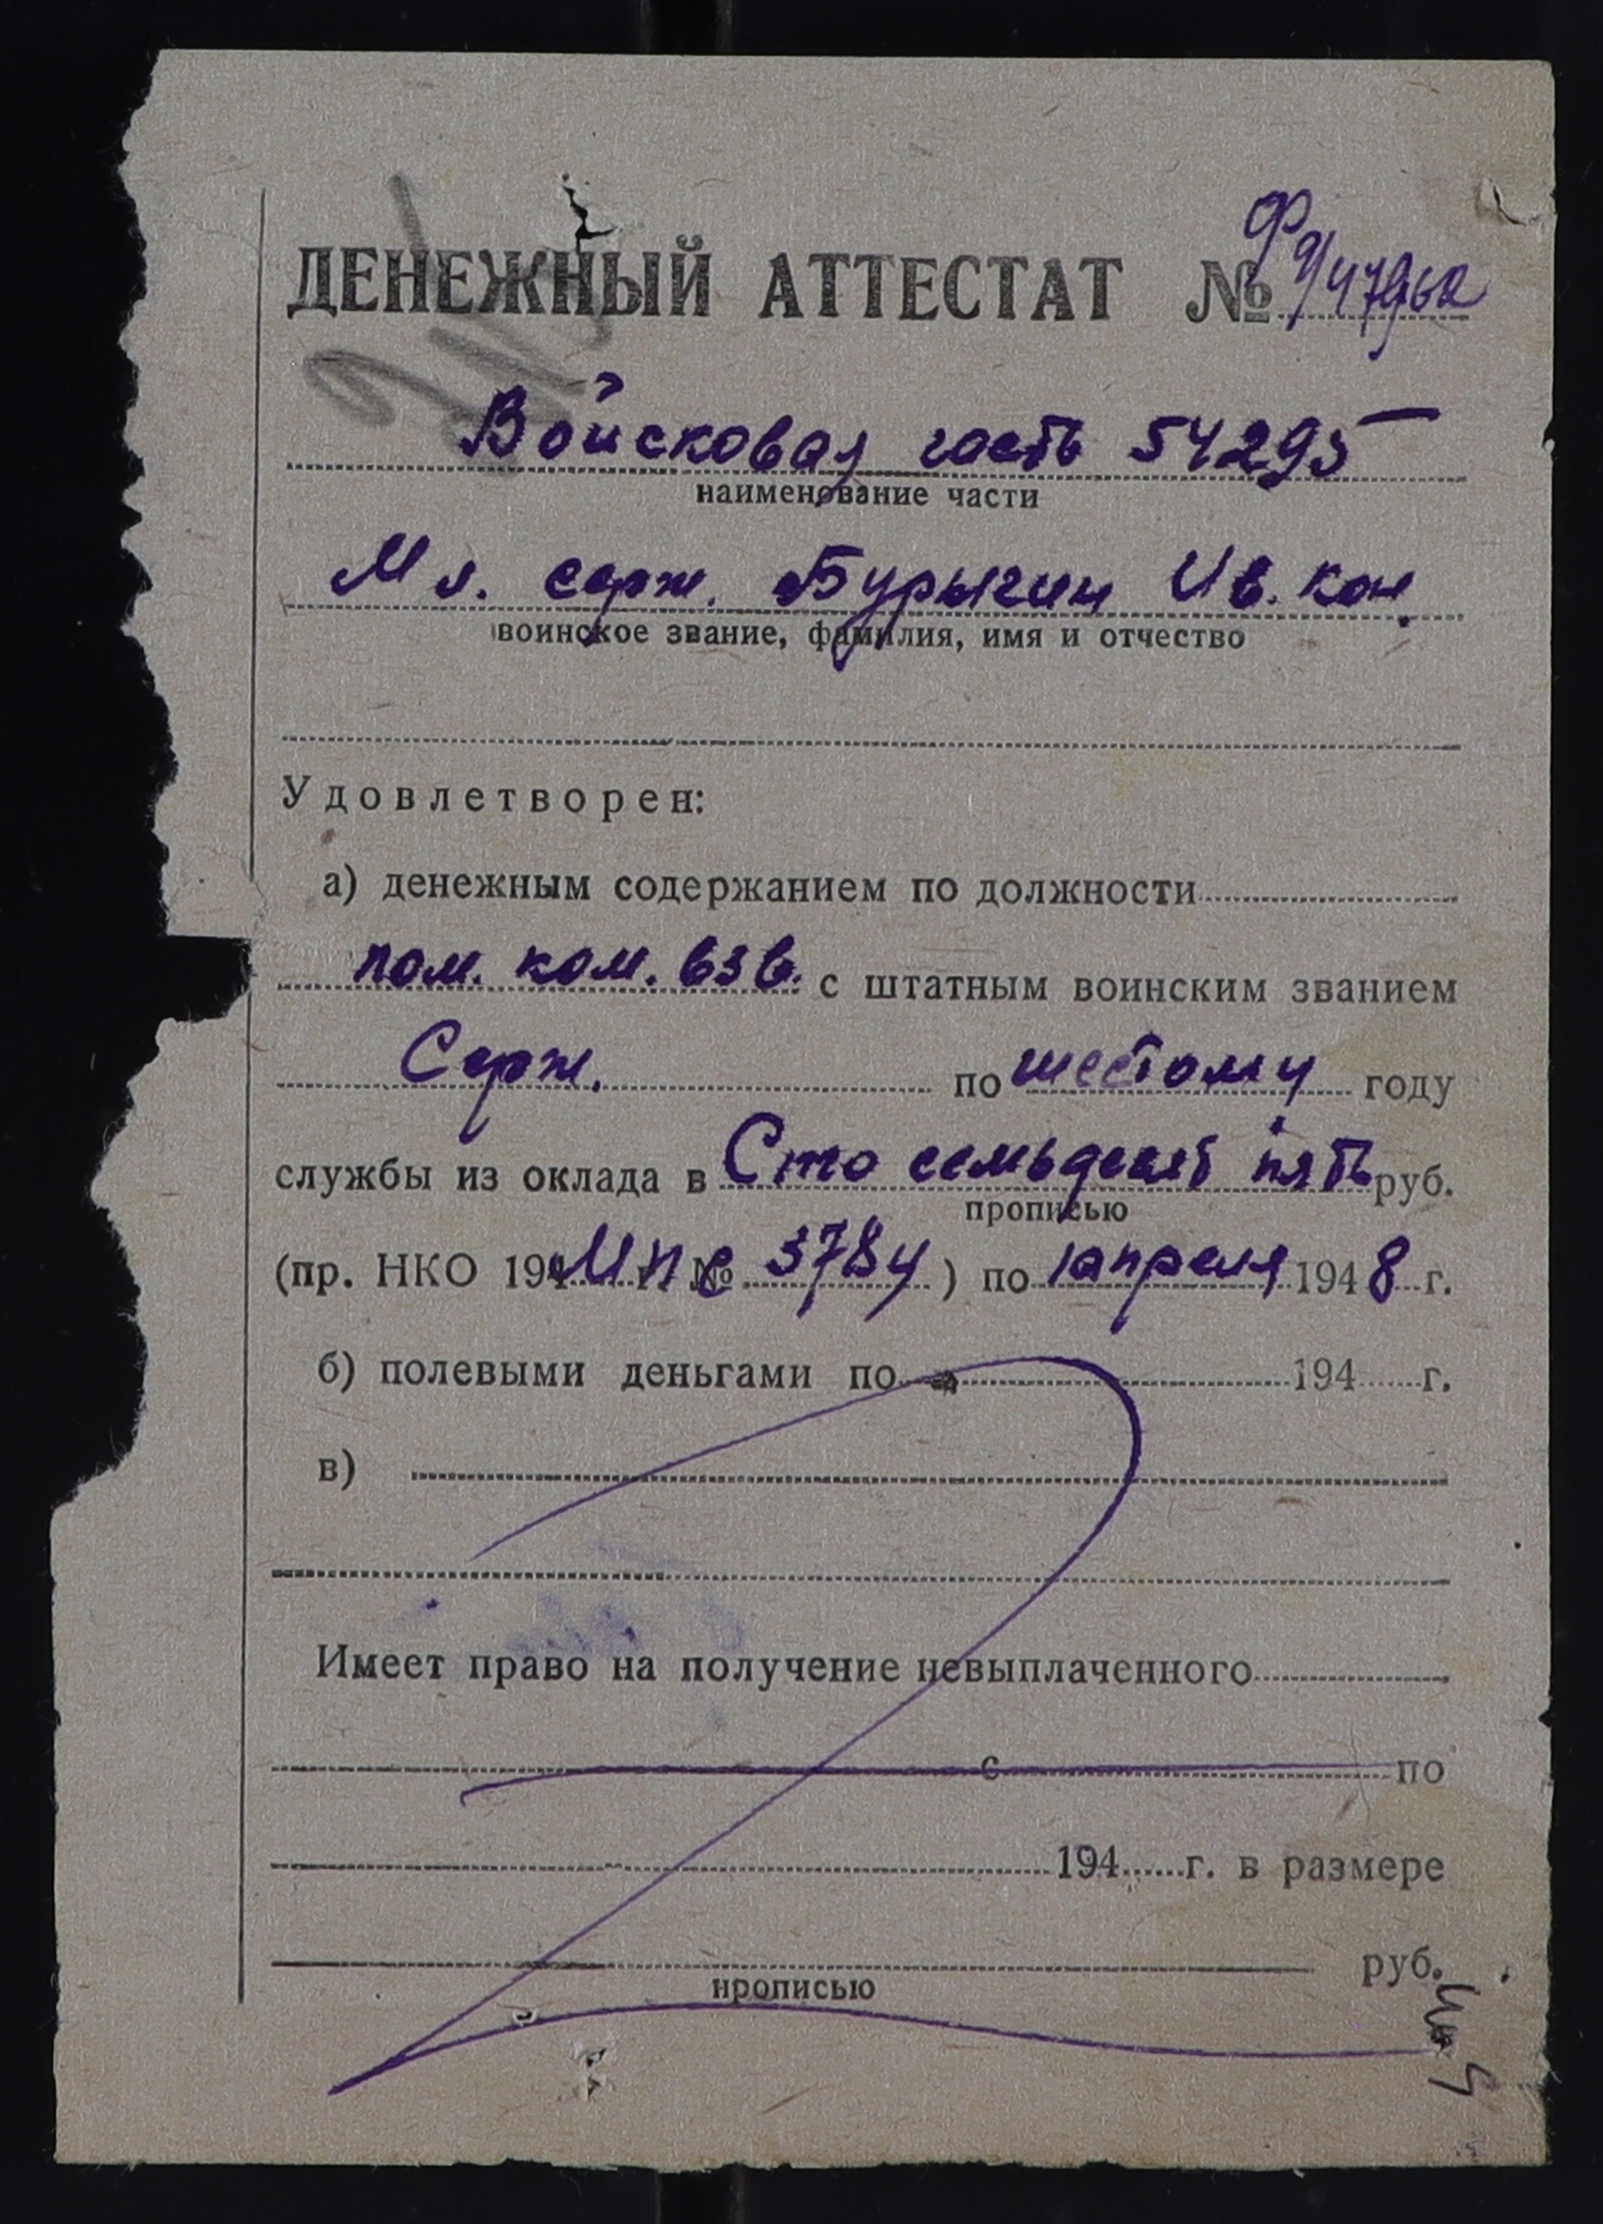 ДЕНЕЖНЫЙ АТТЕСТАТ №
Войсковая часть 54295
наименование части
Мл. серж. Бурыгин Ив. Кон.
воинское звание, фамилия, имя и отчество
Удовлетворен:
а) денежным содержанием по должности
пом. ком. взв. с штатным воинским званием
Серж. по шестому году
службы из оклада в Сто семьдесят пять руб.
прописью
(пр. НКО 194 МПС № 3784) по 1 апреля 1948 г.
б) полевыми деньгами по 194 г.
в)
Имеет право на получение невыплаченного
с по
194 г. в размере
руб.
прописью